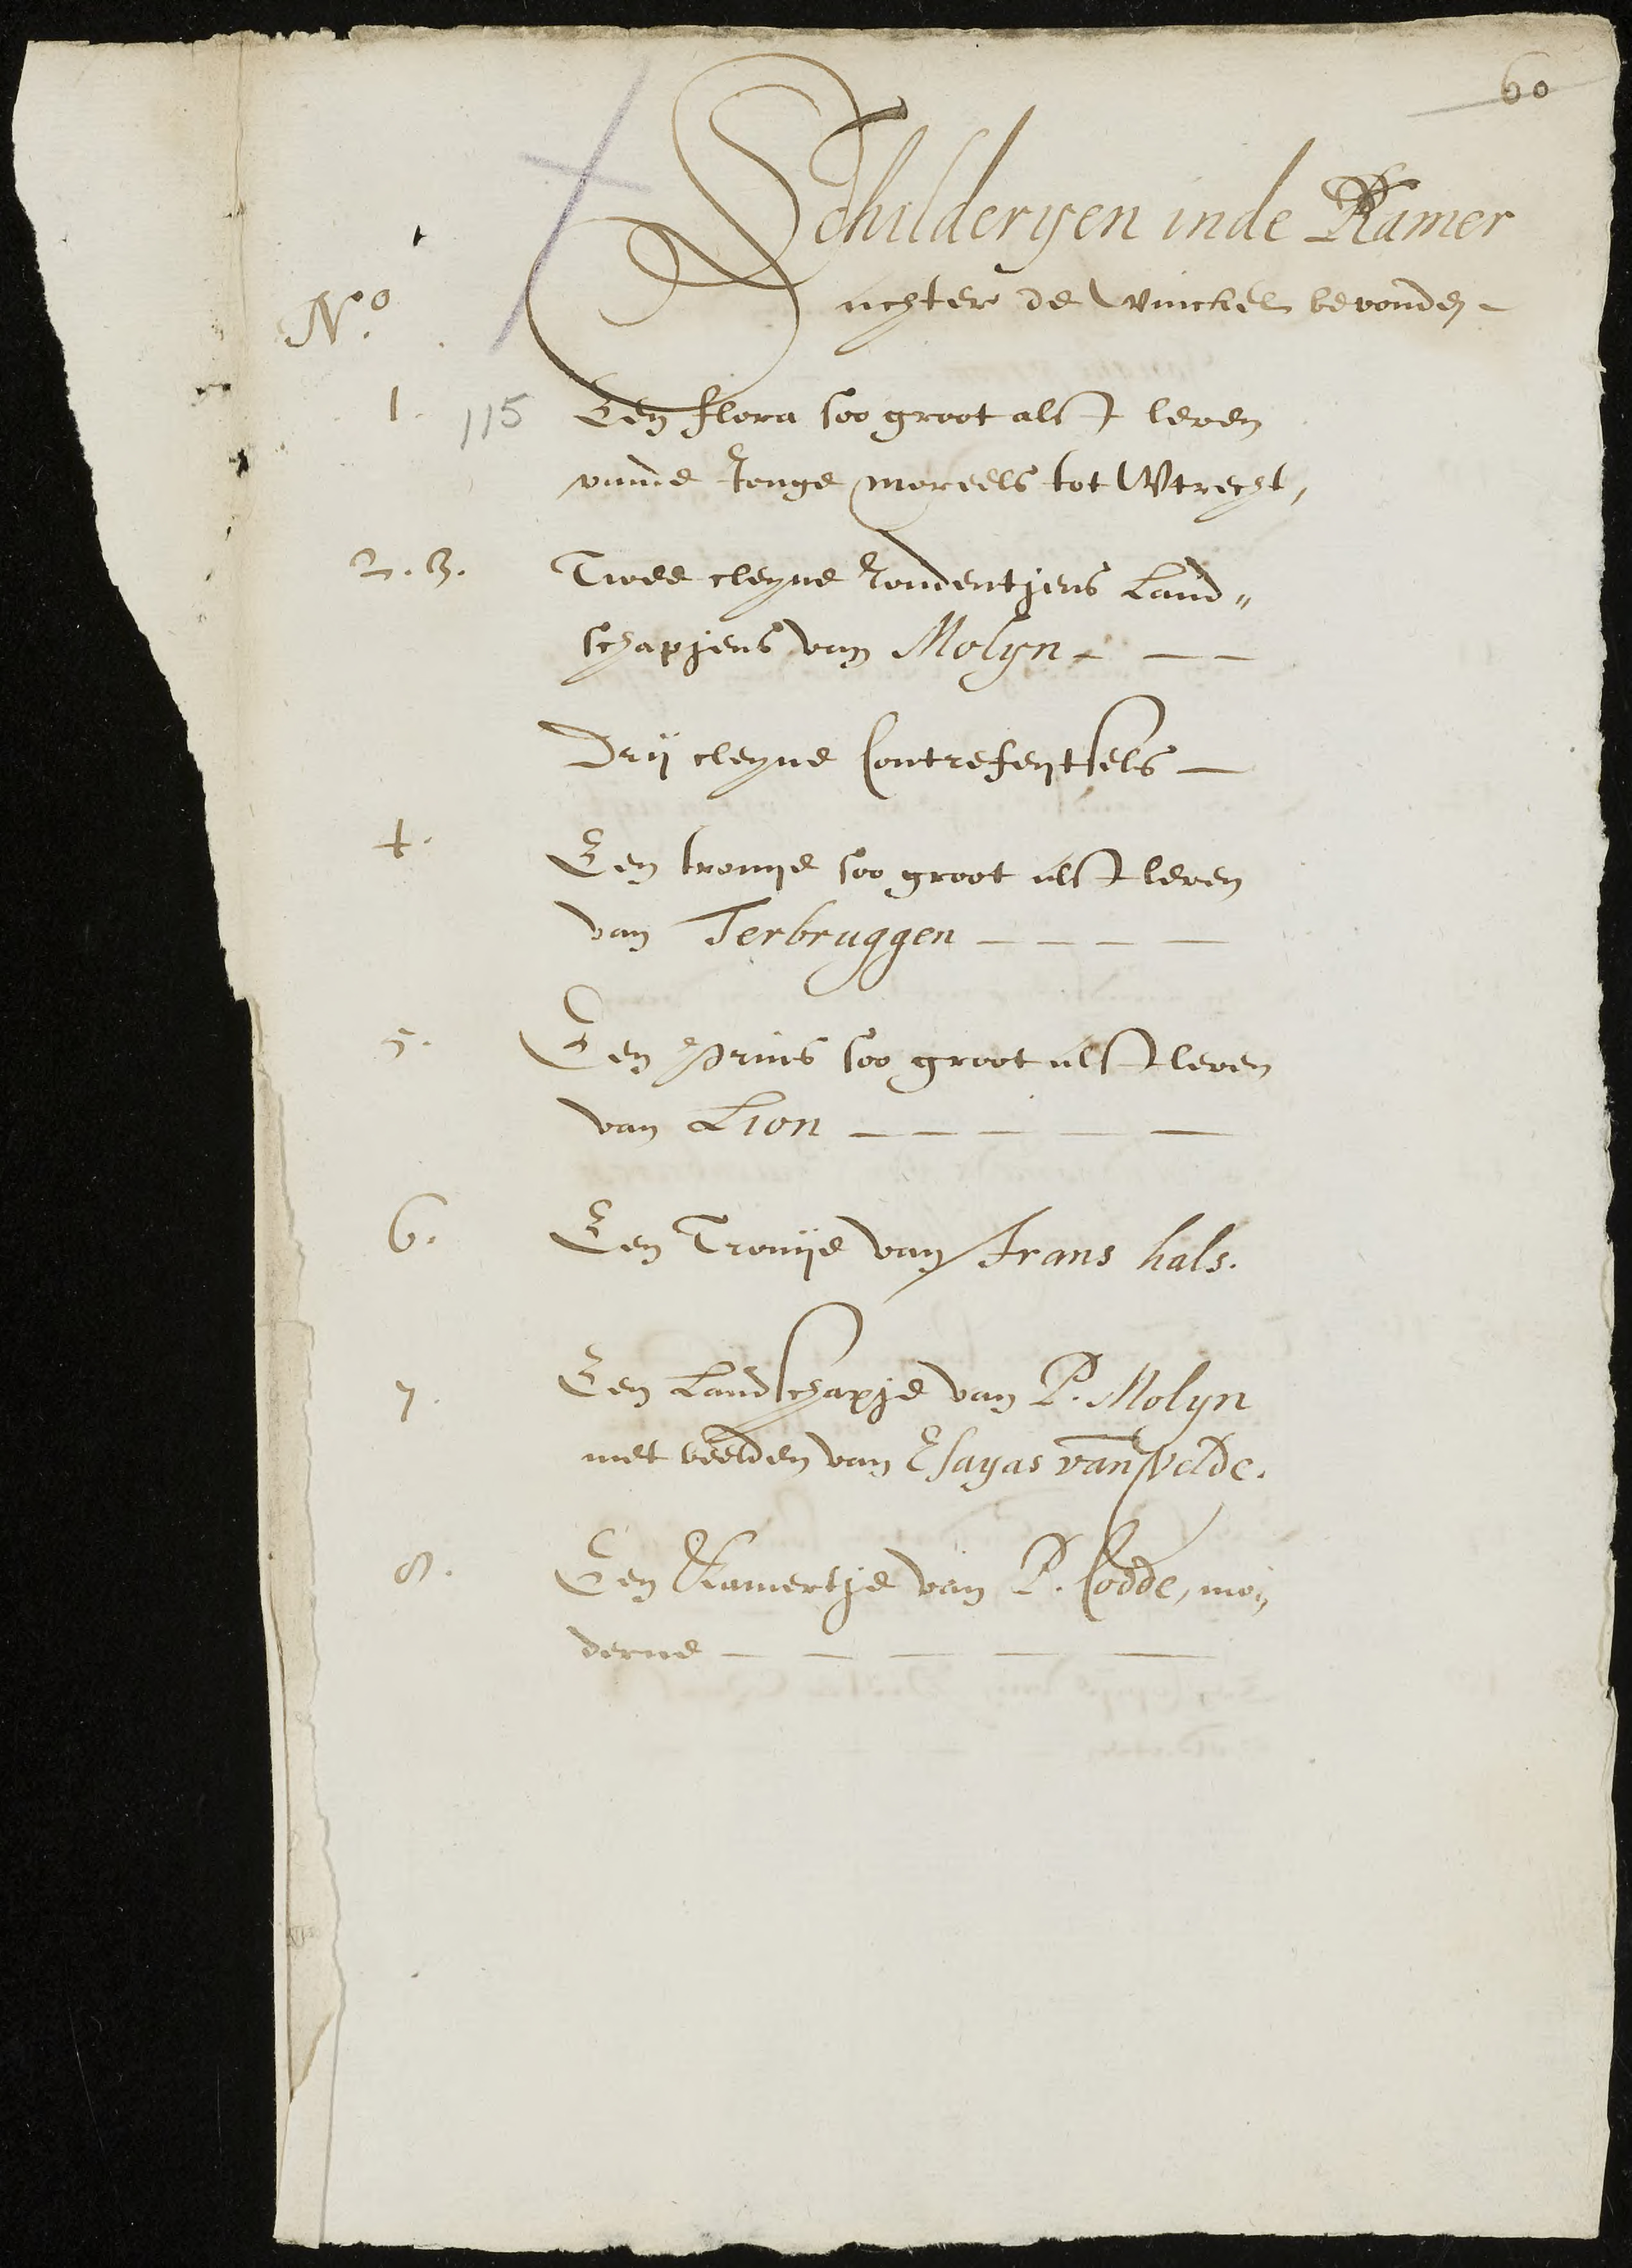 60
Schilderyen inde Kamer
achter de Winckel bevonden
No.
1. 115 Een flora soo groot alst leven
vande Jonge moreels tot Wtrecht,
2. 3. Twee cleyne Rondentjens Land„
schapjens van Molyn
Drij cleyne Contrefeytsels
4. Een tronije soo groot alst leven
van Terbruggen
5. Een prins soo groot alst leven
van Lion
6. Een Tronije van Frans hals.
7. Een Landschapje van P. Molyn
met beelden van Esayas van Velde.
8. Een Kamertje van P. Codde, mo„
derne